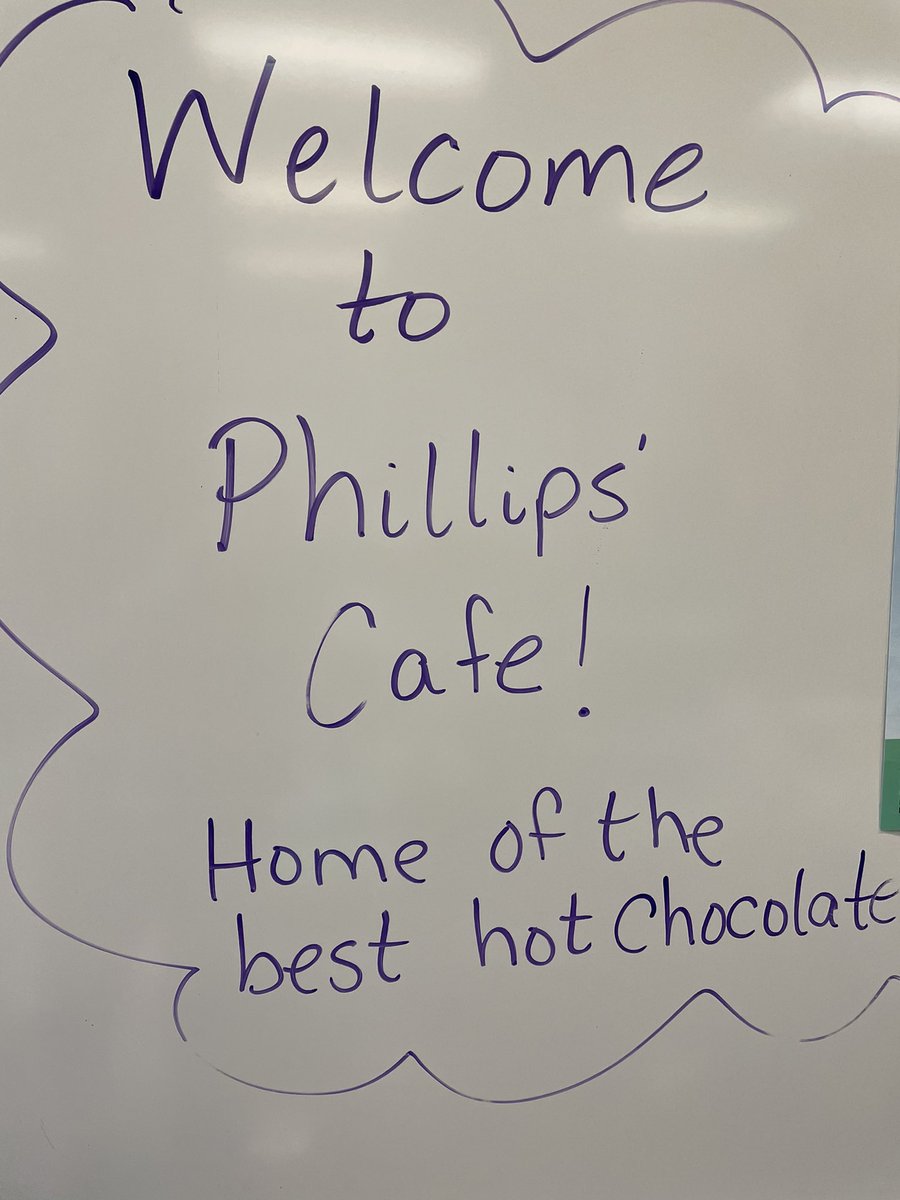 Welcome
to
Phillips'
Cafe!
Home of the
best hot Chocolate